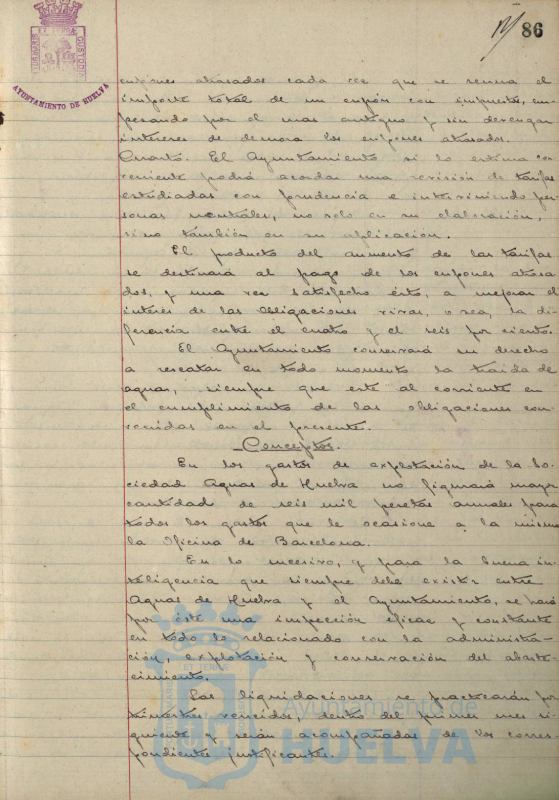 86
PORTUS MARIS ET TERRAE CUSTODIA
AYUNTAMIENTO DE HUELVA
cupones atrasados cada vez que se reuna el
importe total de un cupón con impuestos, em
pezando por el mas antiguo y sin devengar
intereses de demora los cupones atrasados.
Cuarto. El Ayuntamiento si lo estima con
veniente podrá acordar una revisión de tarifas
estudiadas con prudencia e interviniendo per
sonas neutrales, no solo en su elaboración,
sino también en su aplicación.
El producto del aumento de las tarifas
se destinará al pago de los cupones atrasa
dos, y una vez satisfecho ésto, a mejorar el
interés de las obligaciones vivas, o sea, la di-
ferencia entre el cuatro y el seis por ciento.
El Ayuntamiento conservará su derecho
a rescatar en todo momento la traida de
aguas, siempre que esté al corriente en
el cumplimiento de las obligaciones con
venidas en el presente.
Conceptos.
En los gastos de explotación de la So-
ciedad Aguas de Huelva no figurará mayor
cantidad de seis mil pesetas anuales para
todos los gastos que le ocasione a la misma
la Oficina de Barcelona.
En lo sucesivo, y para la buena in-
teligencia que siempre debe existir entre
Aguas de Huelva y el Ayuntamiento, se hará
por éste una inspección eficaz y constante
en todo lo relacionado con la administra-
ción, explotación y conservación del abaste-
cimiento.
Las liquidaciones se practicarán por
trimestres vencidos, dentro del primer mes si-
guiente y serán acompañadas de los corres-
pondientes justificantes.
Ayuntamiento de
HUELVA